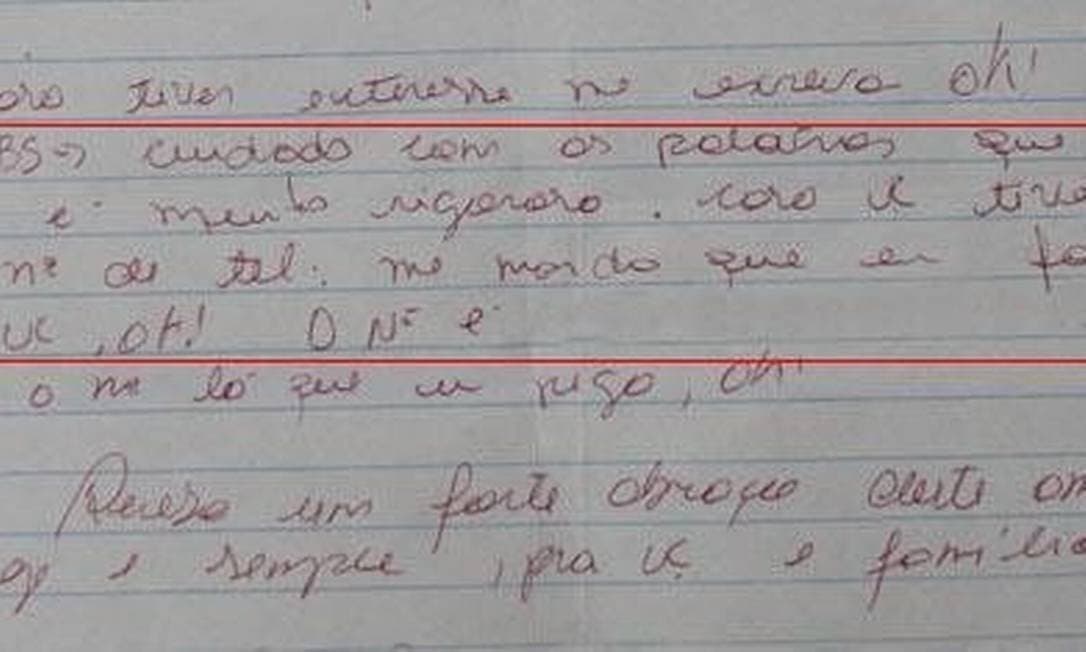 tiver enteresse me escreva oh!
BS→ cuidado com as palavras que
e' muito rigoroso. caso vc
nº de tel. me mando que eu
vc, oh! O Nº e'
o me lá que eu pego, oh!
Receba um forte abraço deste
e sempre, pra vc e familia